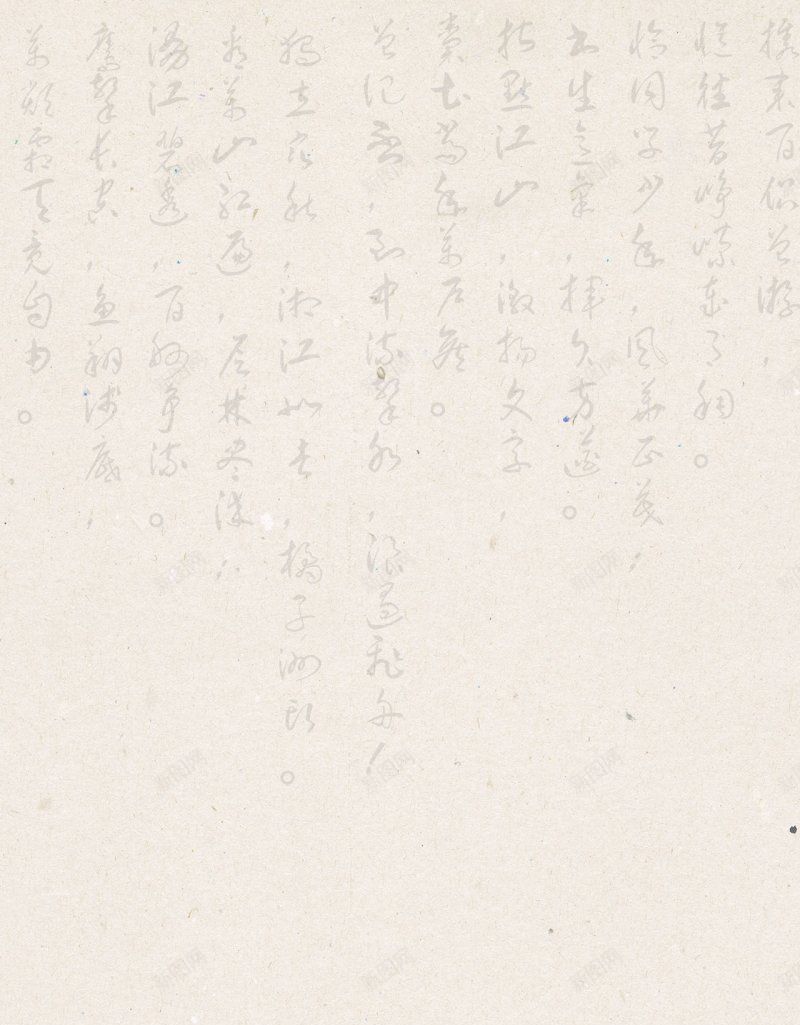 携来百侣曾游，
忆往昔峥嵘岁月稠。
恰同学少年，风華正茂；
书生意氣，挥斥方遒。
指点江山，激扬文字，
粪土当年萬户侯。
曾记否，到中流擊水，浪遏飞舟
独立寒秋，湘江北去，橘子洲头。
看萬山红遍，层林尽染；
漫江碧透，百舸争流。
鹰擊长空，鱼翔浅底，
萬類霜天竞自由。
新图网